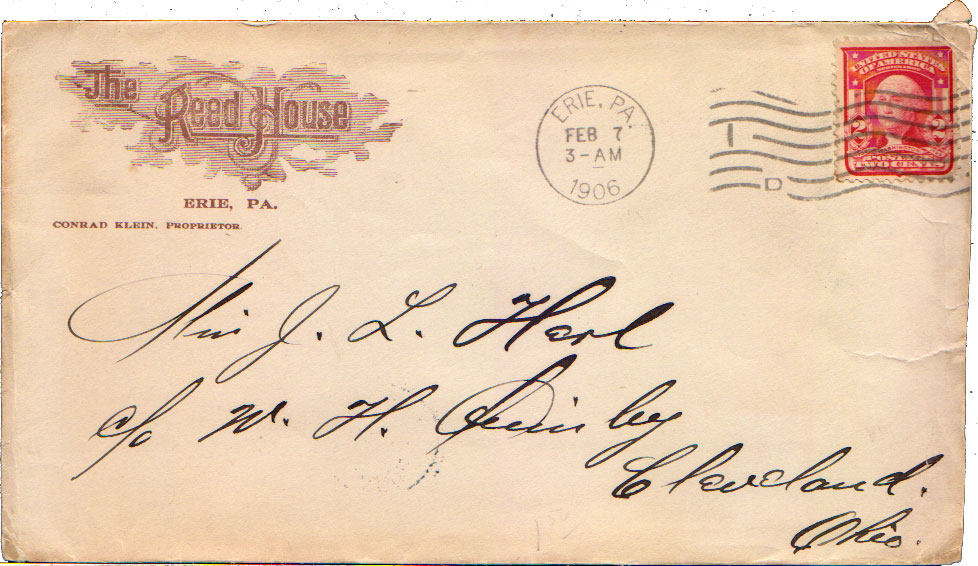 The
Reed House
ERIE, PA.
CONRAD KLEIN, PROPRIETOR.
ERIE, PA.
FEB 7
3-AM
1906
1
D
UNITED STATES
OF AMERICA
2 2
POSTAGE
TWO CENTS
Miss J. L. Herl
c/o W. H. Quinby
Cleveland.
Ohio.